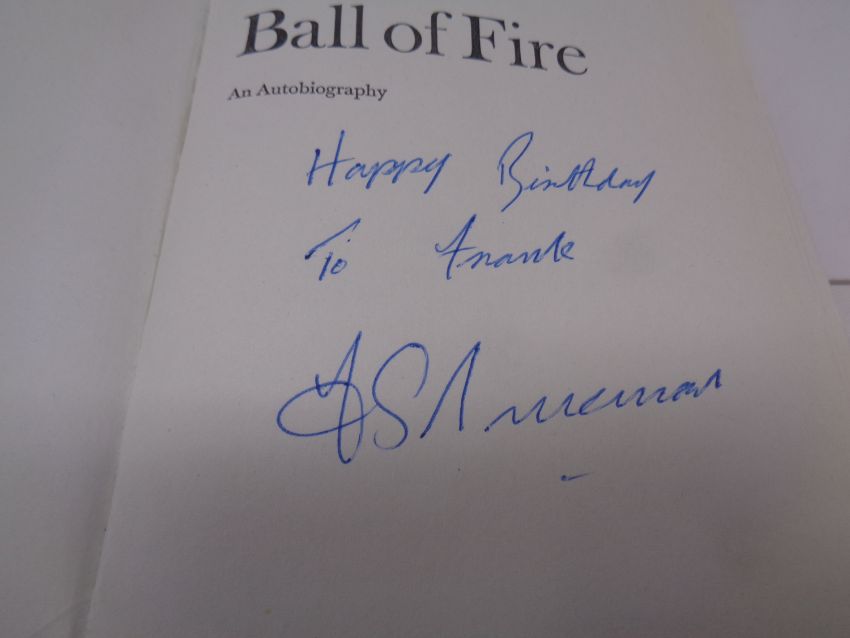 Ball of Fire
An Autobiography
Happy Birthday
To Frank